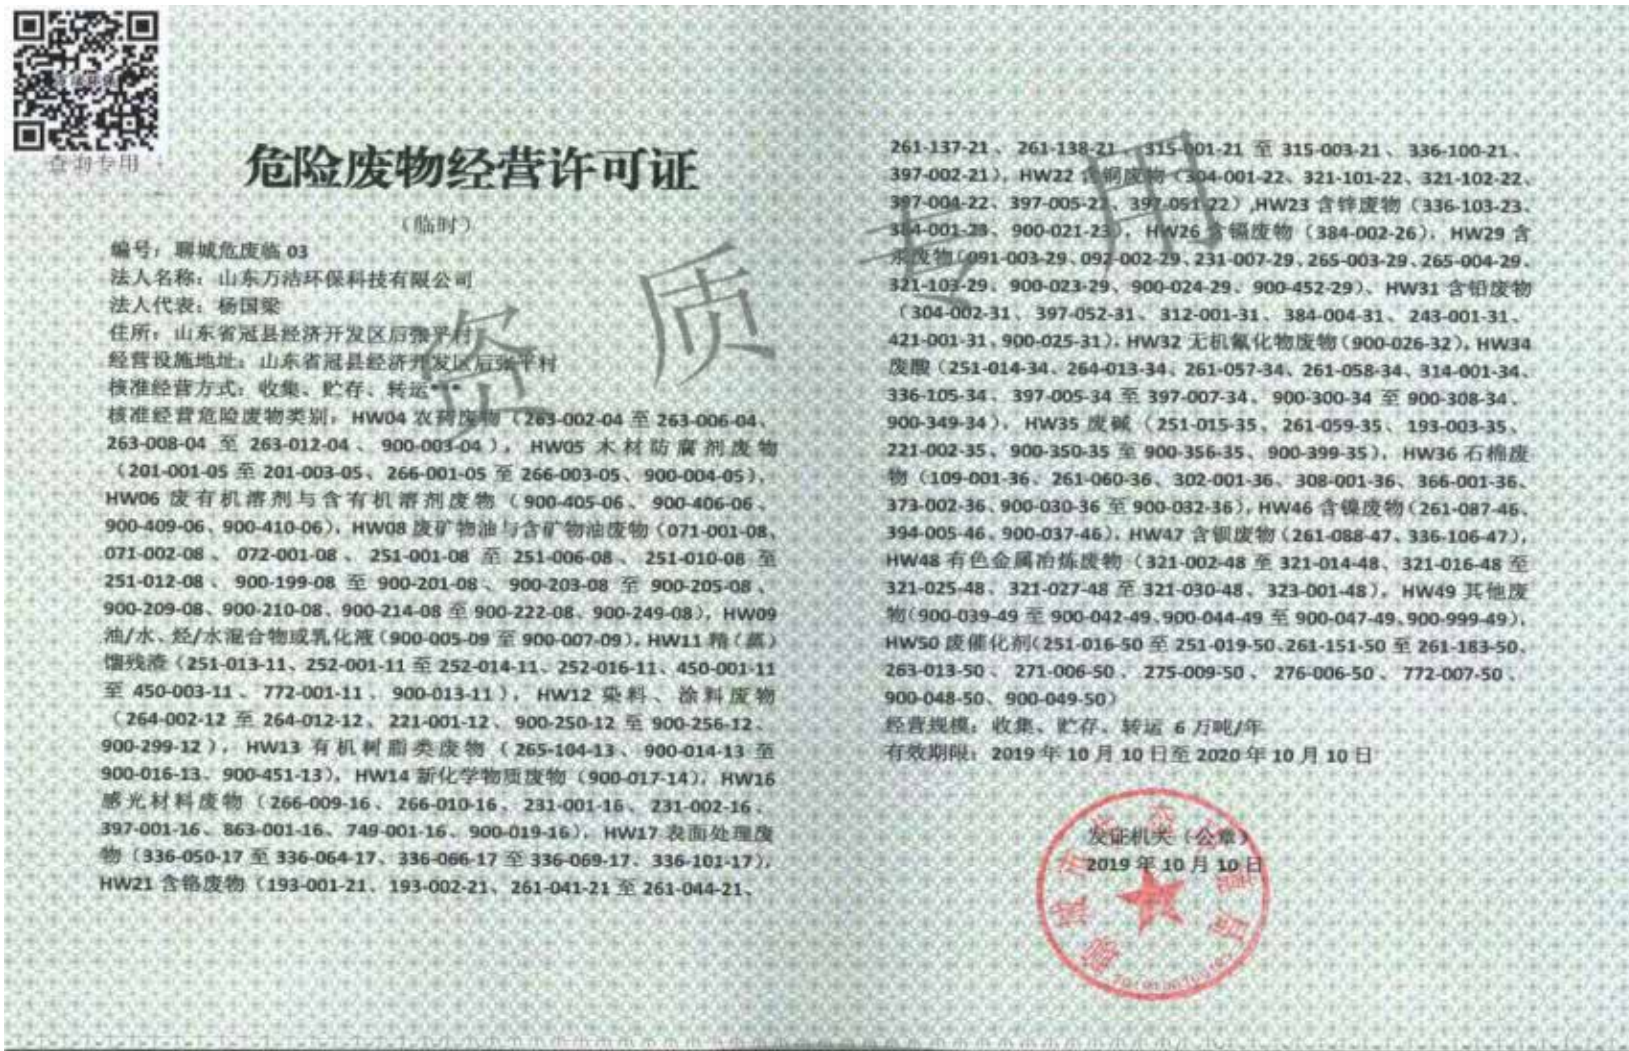 查询专用
危险废物经营许可证
（临时）
编号：聊城危废临 03
法人名称：山东万洁环保科技有限公司
法人代表：杨国梁
住所：山东省冠县经济开发区后张平村
经营设施地址：山东省冠县经济开发区后张平村
核准经营方式：收集、贮存、转运***
核准经营危险废物类别：HW04 农药废物（263-002-04 至 263-006-04、
263-008-04 至 263-012-04 、 900-003-04 ），HW05 木材防腐剂废物
（201-001-05 至 201-003-05、266-001-05 至 266-003-05、900-004-05），
HW06 废有机溶剂与含有机溶剂废物（900-405-06、900-406-06、
900-409-06、900-410-06），HW08 废矿物油与含矿物油废物（071-001-08、
071-002-08 、 072-001-08 、 251-001-08 至 251-006-08 、 251-010-08 至
251-012-08 、 900-199-08 至 900-201-08 、 900-203-08 至 900-205-08 、
900-209-08、900-210-08、900-214-08 至 900-222-08、900-249-08），HW09
油/水、烃/水混合物或乳化液（900-005-09 至 900-007-09），HW11 精（蒸）
馏残渣（251-013-11、252-001-11 至 252-014-11、252-016-11、450-001-11
至 450-003-11 、 772-001-11 、 900-013-11 ），HW12 染料、涂料废物
（264-002-12 至 264-012-12、221-001-12、900-250-12 至 900-256-12、
900-299-12 ），HW13 有机树脂类废物（265-104-13 、 900-014-13 至
900-016-13、900-451-13），HW14 新化学物质废物（900-017-14），HW16
感光材料废物（266-009-16 、 266-010-16 、 231-001-16 、 231-002-16 、
397-001-16、863-001-16、749-001-16、900-019-16），HW17 表面处理废
物（336-050-17 至 336-064-17、336-066-17 至 336-069-17、336-101-17），
HW21 含铬废物（193-001-21、193-002-21、261-041-21 至 261-044-21、
261-137-21 、 261-138-21 、 315-001-21 至 315-003-21 、 336-100-21 、
397-002-21），HW22 含铜废物（304-001-22、321-101-22、321-102-22、
397-004-22、397-005-22、397-051-22）,HW23 含锌废物（336-103-23、
384-001-23、900-021-23），HW26 含镉废物（384-002-26），HW29 含
汞废物（091-003-29、092-002-29、231-007-29、265-003-29、265-004-29、
321-103-29、900-023-29、900-024-29、900-452-29）、HW31 含铅废物
（304-002-31、397-052-31、312-001-31、384-004-31、243-001-31、
421-001-31、900-025-31），HW32 无机氟化物废物（900-026-32），HW34
废酸（251-014-34、264-013-34、261-057-34、261-058-34、314-001-34、
336-105-34、397-005-34 至 397-007-34、900-300-34 至 900-308-34、
900-349-34），HW35 废碱（251-015-35、261-059-35、193-003-35、
221-002-35、900-350-35 至 900-356-35、900-399-35），HW36 石棉废
物（109-001-36、261-060-36、302-001-36、308-001-36、366-001-36、
373-002-36、900-030-36 至 900-032-36），HW46 含镍废物（261-087-46、
394-005-46、900-037-46），HW47 含钡废物（261-088-47、336-106-47），
HW48 有色金属冶炼废物（321-002-48 至 321-014-48、321-016-48 至
321-025-48、321-027-48 至 321-030-48、323-001-48），HW49 其他废
物（900-039-49 至 900-042-49、900-044-49 至 900-047-49、900-999-49），
HW50 废催化剂（251-016-50 至 251-019-50、261-151-50 至 261-183-50、
263-013-50 、 271-006-50 、 275-009-50 、 276-006-50 、 772-007-50 、
900-048-50、900-049-50）
经营规模：收集、贮存、转运 6 万吨/年
有效期限：2019 年 10 月 10 日至 2020 年 10 月 10 日
发证机关（公章）
2019 年 10 月 10 日
资质专用